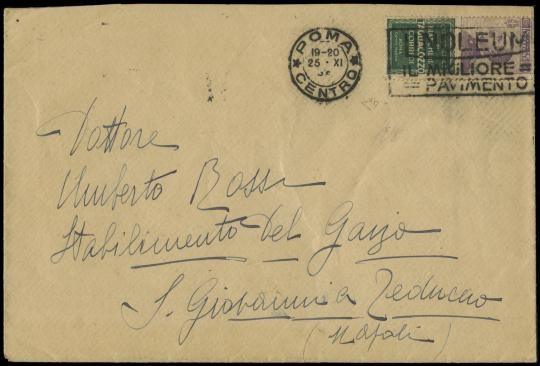 ROMA
CENTRO
19-20
25 · XI
TAGLIACOZZO
LINOLEUM
IL MIGLIORE
PAVIMENTO
Dottore
Umberto Rossi
Stabilimento Del Gazo
S. Giovanni a Teduccio
(Napoli)